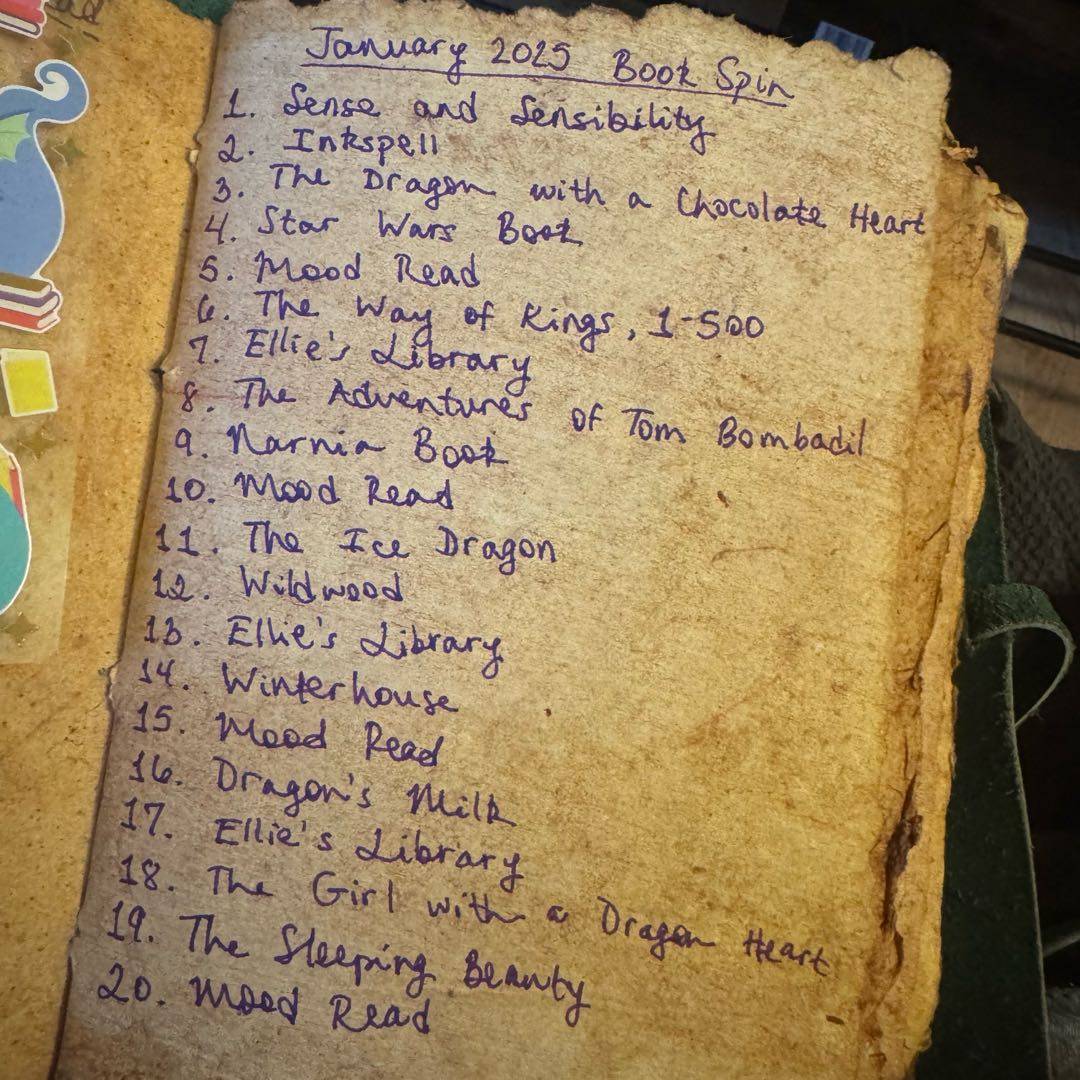 January 2025 Book Spin
1. Sense and Sensibility
2. Inkspell
3. The Dragon with a Chocolate Heart
4. Star Wars Book
5. Mood Read
6. The Way of Kings, 1-500
7. Ellie's Library
8. The Adventures of Tom Bombadil
9. Narnia Book
10. Mood Read
11. The Ice Dragon
12. Wildwood
13. Ellie's Library
14. Winterhouse
15. Mood Read
16. Dragon's Milk
17. Ellie's Library
18. The Girl with a Dragon Heart
19. The Sleeping Beauty
20. Mood Read